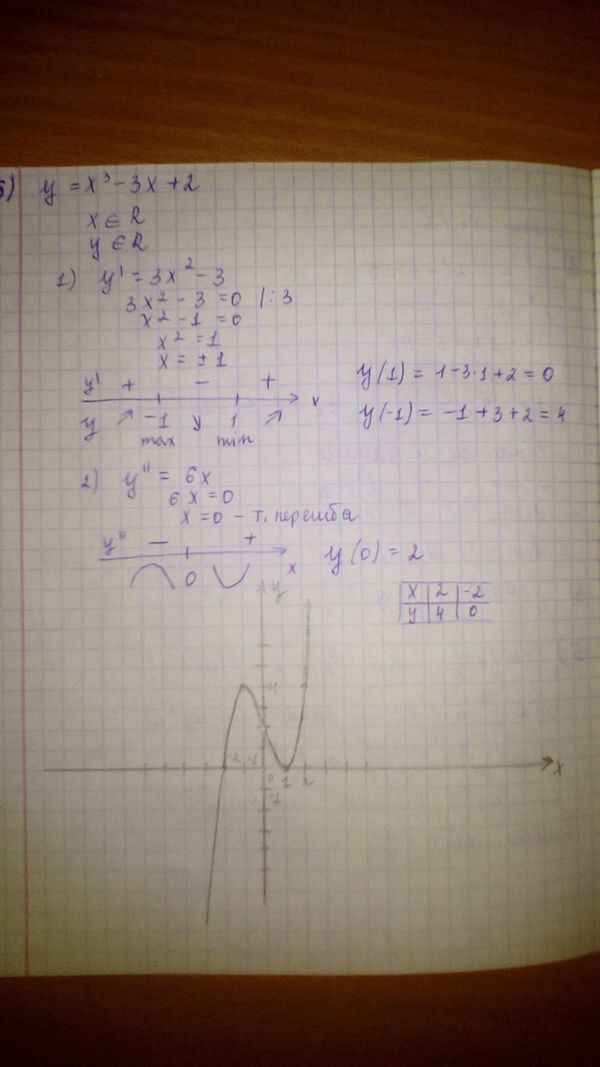 б) y = x³ - 3x + 2
x ∈ R
y ∈ R
1) y' = 3x² - 3
3x² - 3 = 0 | : 3
x² - 1 = 0
x² = 1
x = ± 1
y' + - + x
y ↗ -1 ↘ 1 ↗
max min
y(1) = 1 - 3·1 + 2 = 0
y(-1) = -1 + 3 + 2 = 4
2) y'' = 6x
6x = 0
x = 0 - т. перегиба
y'' - + x
0
y(0) = 2
x 2 -2
y 4 0
y
4
-2 -1 0 1 2 x
-1